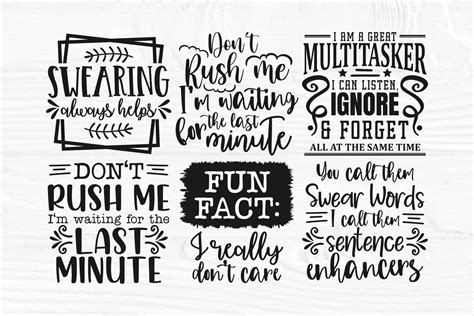 SWEARING
always helps
Don't
Rush me
I'm waiting
for the last
minute
I AM A GREAT
MULTITASKER
I CAN LISTEN,
IGNORE
& FORGET
ALL AT THE SAME TIME
DON'T
RUSH ME
I'm waiting for the
LAST
MINUTE
FUN
FACT:
I really
don't care
You call them
Swear Words
I call them
sentence
enhancers